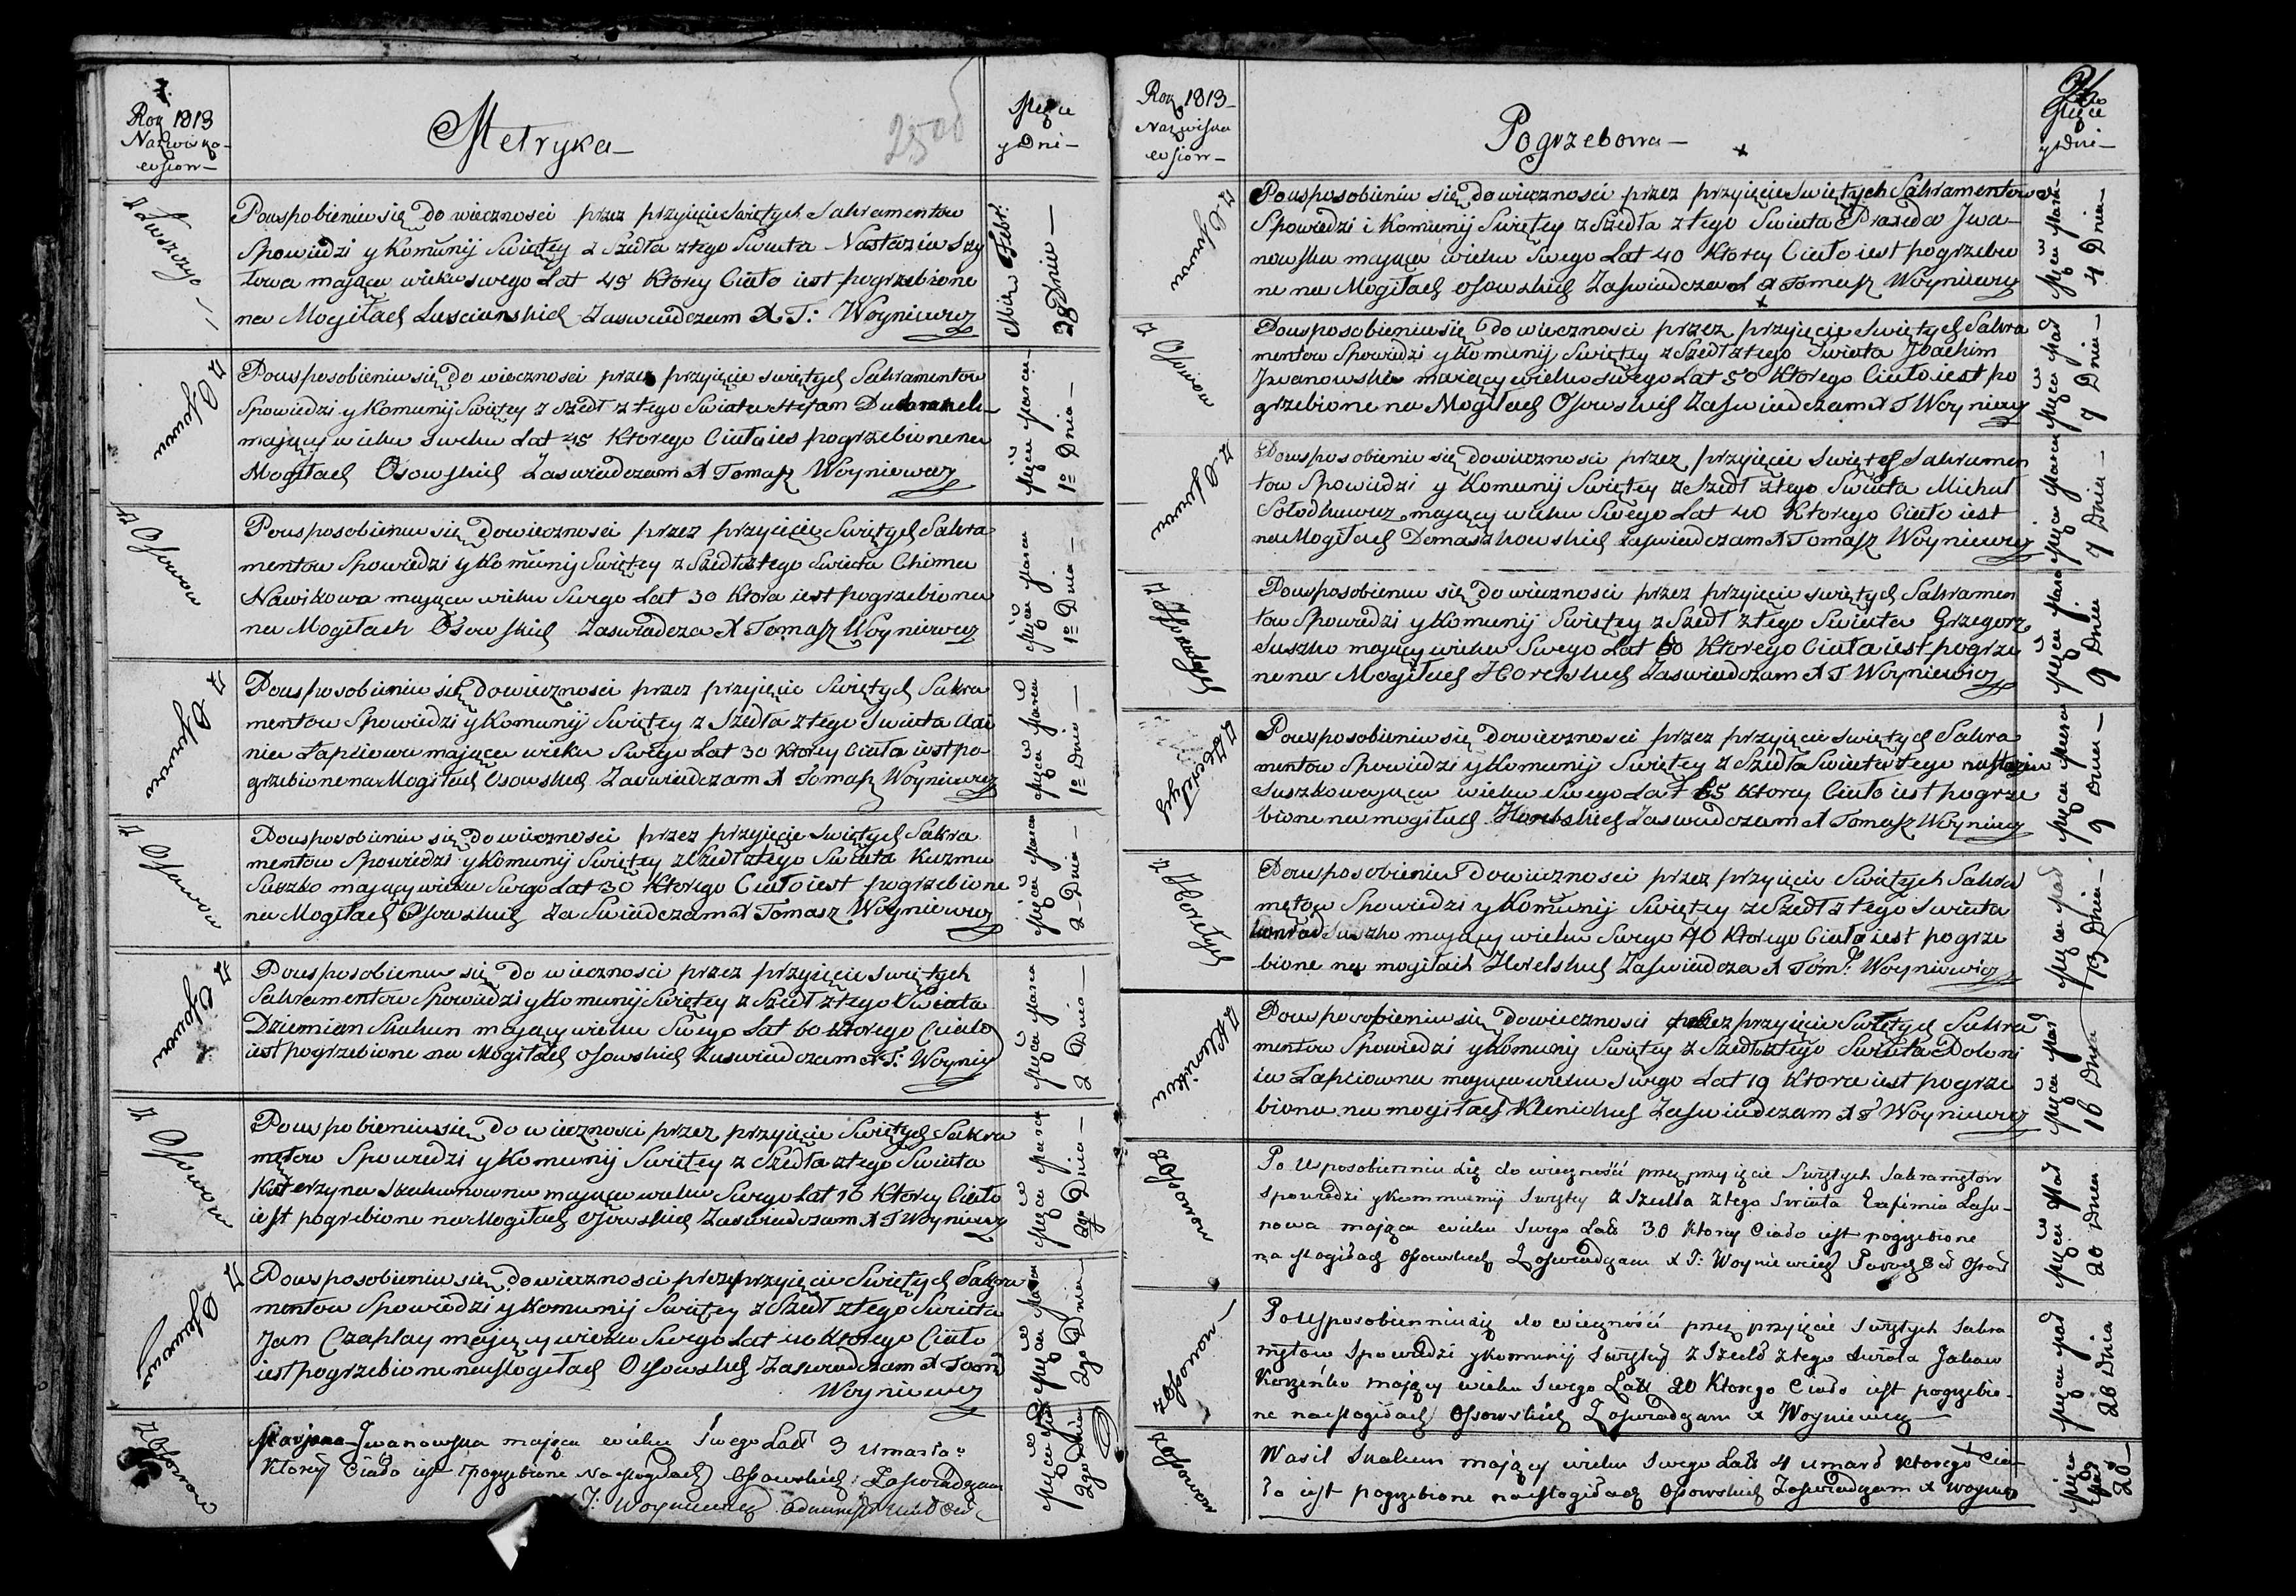 Rok 1813
Nazwiska
wsiow
Metryka
2500
Mięce
y Dni
z Łuszczyc
Pouspobieniu się do wiecznosci przez przyięcie Swiętych Sakramentow
Spowiedzi y Komunij Swiętey z Szedła ztego Swiata Nastazia Szy
łowa maiąca wieku swego Lat 45 Ktorey Ciało iest pogrzebione
na Mogiłach Luscianskich Zaswiadczam X T: Woyniewicz
Febr:
28 Dnia
z Osowa
Pousposobieniu się do wiecznosci przez przyięcie swiętych Sakramentow
Spowiedzi y Komunij Swiętey z Szedł z tego Swiata Stefan
maiący wieku swehu Lat 45 Ktorego Ciało ies pogrzebione na
Mogiłach Osowskich Zaswiadczam X Tomasz Woyniewicz
Mięca Marca
1o Dnia
z Osowa
Pousposobieniu się do wiecznosci przez przyięcie Swiętych Sakra
mentow Spowiedzi y Komunij Swiętey z Szedła ztego Swiata Chima
Nawikowa maiąca wieku Swego Lat 30 Ktora iest pogrzebiona
na Mogiłach Osowskich Zaswiadcza X Tomasz Woyniewicz
Mięca Marca
1o Dnia
z Osowa
Pousposobieniu się do wiecznosci przez przyięcie Swiętych Sakra
mentow Spowiedzi y Komunij Swiętey z Szedła ztego Swiata
nia Łapciowa maiąca wieku Swego Lat 30 Ktorey Ciała iest po-
grzebione na Mogiłach Osowskich Zaswiadczam X Tomasz Woyniewicz
Mięca Marca
1o Dnia
z Osowa
Pousposobieniu się do wiecznosci przez przyięcie Swiętych Sakra
mentow Spowiedzi y Komunij Swiętey z Szedł ztego Swiata Kuzma
Suszko maiący wieku Swego Lat 30 Ktorego Ciało iest pogrzebione
na Mogiłach Osowskich Za Swiadczam X Tomasz Woyniewicz
Mięca Marca
2 Dnia
z Osowa
Pousposobieniu się do wiecznosci przez przyięcie Swiętych
Sakramentow Spowiedzi y Komunij Swiętey z Szedł ztego Swiata
Dziemian Skakun maiący wieku Swego Lat 60 Ktorego Ciało
iest pogrzebione na Mogiłach Osowskich Zaswiadczam X T: Woyniew
Mięca Marca
2 Dnia
z Osowa
Pouspobieniu się do wiecznosci przez przyięcie Swiętych Sakra
mętow Spowiedzi y Komunij Swiętey z Szedła ztego Swiata
Katerzyna Skakunowna maiąca wieku Swego Lat 16 Ktorey Ciało
iest pogrebione na Mogiłach Osowskich Zaswiadczam X T Woyniewicz
Mięca Marca
2go Dnia
z Osowa
Pousposobieniu się do wiecznosci przez przyięcie Swiętych Sakra
mentow Spowiedzi y Komunij Swiętey z Szedł ztego Swiata
Jan Czaplay maiący wieku Swego Lat 40 Ktorego Ciało
iest pogrzebione na Mogiłach Osowskich Zaswiadczam X Tom
Woyniewicz
Mięca Marca
2go Dnia
z Osowa
Marjana Jwanowska maiąca wieku Swego Lat 3 Umarła
Ktorey Ciało iest pogrzebione Na Mogiłach Osowskich Zaswiadczam
T: Woyniewicz
2go Dnia
Rok 1813
Nazwiska
wsiow
Pogrzebowa
Mięce
y Dni
z Osowa
Pousposobieniu się do wiecznosci przez przyięcie Swiętych Sakramentow
Spowiedzi i Komunij Swiętey z Szedła z tego Swiata Praxeda Jwa-
nowska maiąca wieku Swego Lat 40 Ktorey Ciało iest pogrzebio
ne na Mogiłach Osowskich Zaswiadcza X Tomasz Woyniewicz
Mięca Marca
4 Dnia
z Osowa
Pousposobieniu się do wiecznosci przez przyięcie Swiętych Sakra
mentow Spowiedzi y Komunij Swiętey z Szedł ztego Swiata Joachim
Jwanowski maiący wieku swego Lat 50 Ktorego Ciało iest po
grzebione na Mogiłach Osowskich Zaswiadczam X T Woyniewicz
Mięca Mar
7 Dnia
z Osowa
Pousposobieniu się do wiecznosci przez przyięcie Swiętych Sakramen
tow Spowiedzi y Komunij Swiętey z Szedł ztego Swiata Michał
Sołodkiewicz maiący wieku Swego Lat 40 Ktorego Ciało iest
na Mogiłach Domaszkowskich zaswiadczam X Tomasz Woyniewicz
Mięca Marca
7 Dnia
Pousposobieniu się do wiecznosci przez przyięcie swiętych Sakramen
tow Spowiedzi y Komunij Swiętey z Szedł ztego Swiata Grzegorz
Suszko maiący wieku Swego Lat 60 Ktorego Ciała iest pogrze
ne na Mogiłach Horelskich Zaswiadczam X T Woyniewicz
Mięca Marca
9 Dnia
z Horełych
Pousposobieniu się do wiecznosci przez przyięcie swiętych Sakra
mentow Spowiedzi y Komunij Swiętey z Szedła Swiata tego nastazia
Suszkowa wieku Swego Lat 65 Ktorey Ciało iest pogrze
bione na mogiłach Zaswiadczam X Tomasz Woyniewicz
Mięca Marca
9 Dnia
z Horełych
Pousposobieniu do wiecznosci przez przyięcie Swiętych Sakra
mętow Spowiedzi y Komunij Swiętey z Szedł z tego Swiata
Konrad Suszko maiący wieku Swego 70 Ktorego Ciało iest pogrze
bione na mogiłach Horelskich Zaswiadcza X Tom: Woyniewicz
Mięca Mar
13 Dnia
z Klunikow
Pousposobieniu się do wiecznosci przez przyięcie Swiętych Sakra
mentow Spowiedzi y Komunij Swiętey z Szedła ztego Swiata Doloni
ia Łapciowna maiąca wieku Swego Lat 19 Ktora iest pogrze
biona na mogiłach Klenickich Zaswiadczam X T Woyniewicz
Mięca Mar
16 Dnia
z Osowa
Po Usposobienniu się do wieczności przez przyięcie Swiętych Sakramętow
Spowiedzi y Kommunij Swiętey z Szedła ztego Swiata Eufimia Lasu-
nowa maiąca wieku Swego Lat 30 Ktorey Ciało iest pogrzebione
na Mogiłach Osowskich Zaswiadczam X T: Woyniewicz
Mięca Mar
20 Dnia
z Osowa
Po Usposobienniu się do wieczności przez przyięcie Swiętych Sakra
mętow Spowiedzi y Komunij Swiętey z Szedł ztego Swiata Jakow
Korzeńko maiący wieku Swego Lat 20 Ktorego Ciało iest pogrzebio-
ne na Mogiłach Osowskich Zaswiadczam X Woyniewicz
Mięca Mar
26 Dnia
z Osowa
Wasil Skakun maiący wieku Swego Lat 4 umarł Ktorego Cia-
ło iest pogrzebione na Mogiłach Osowskich Zaswiadczam X Woyniew